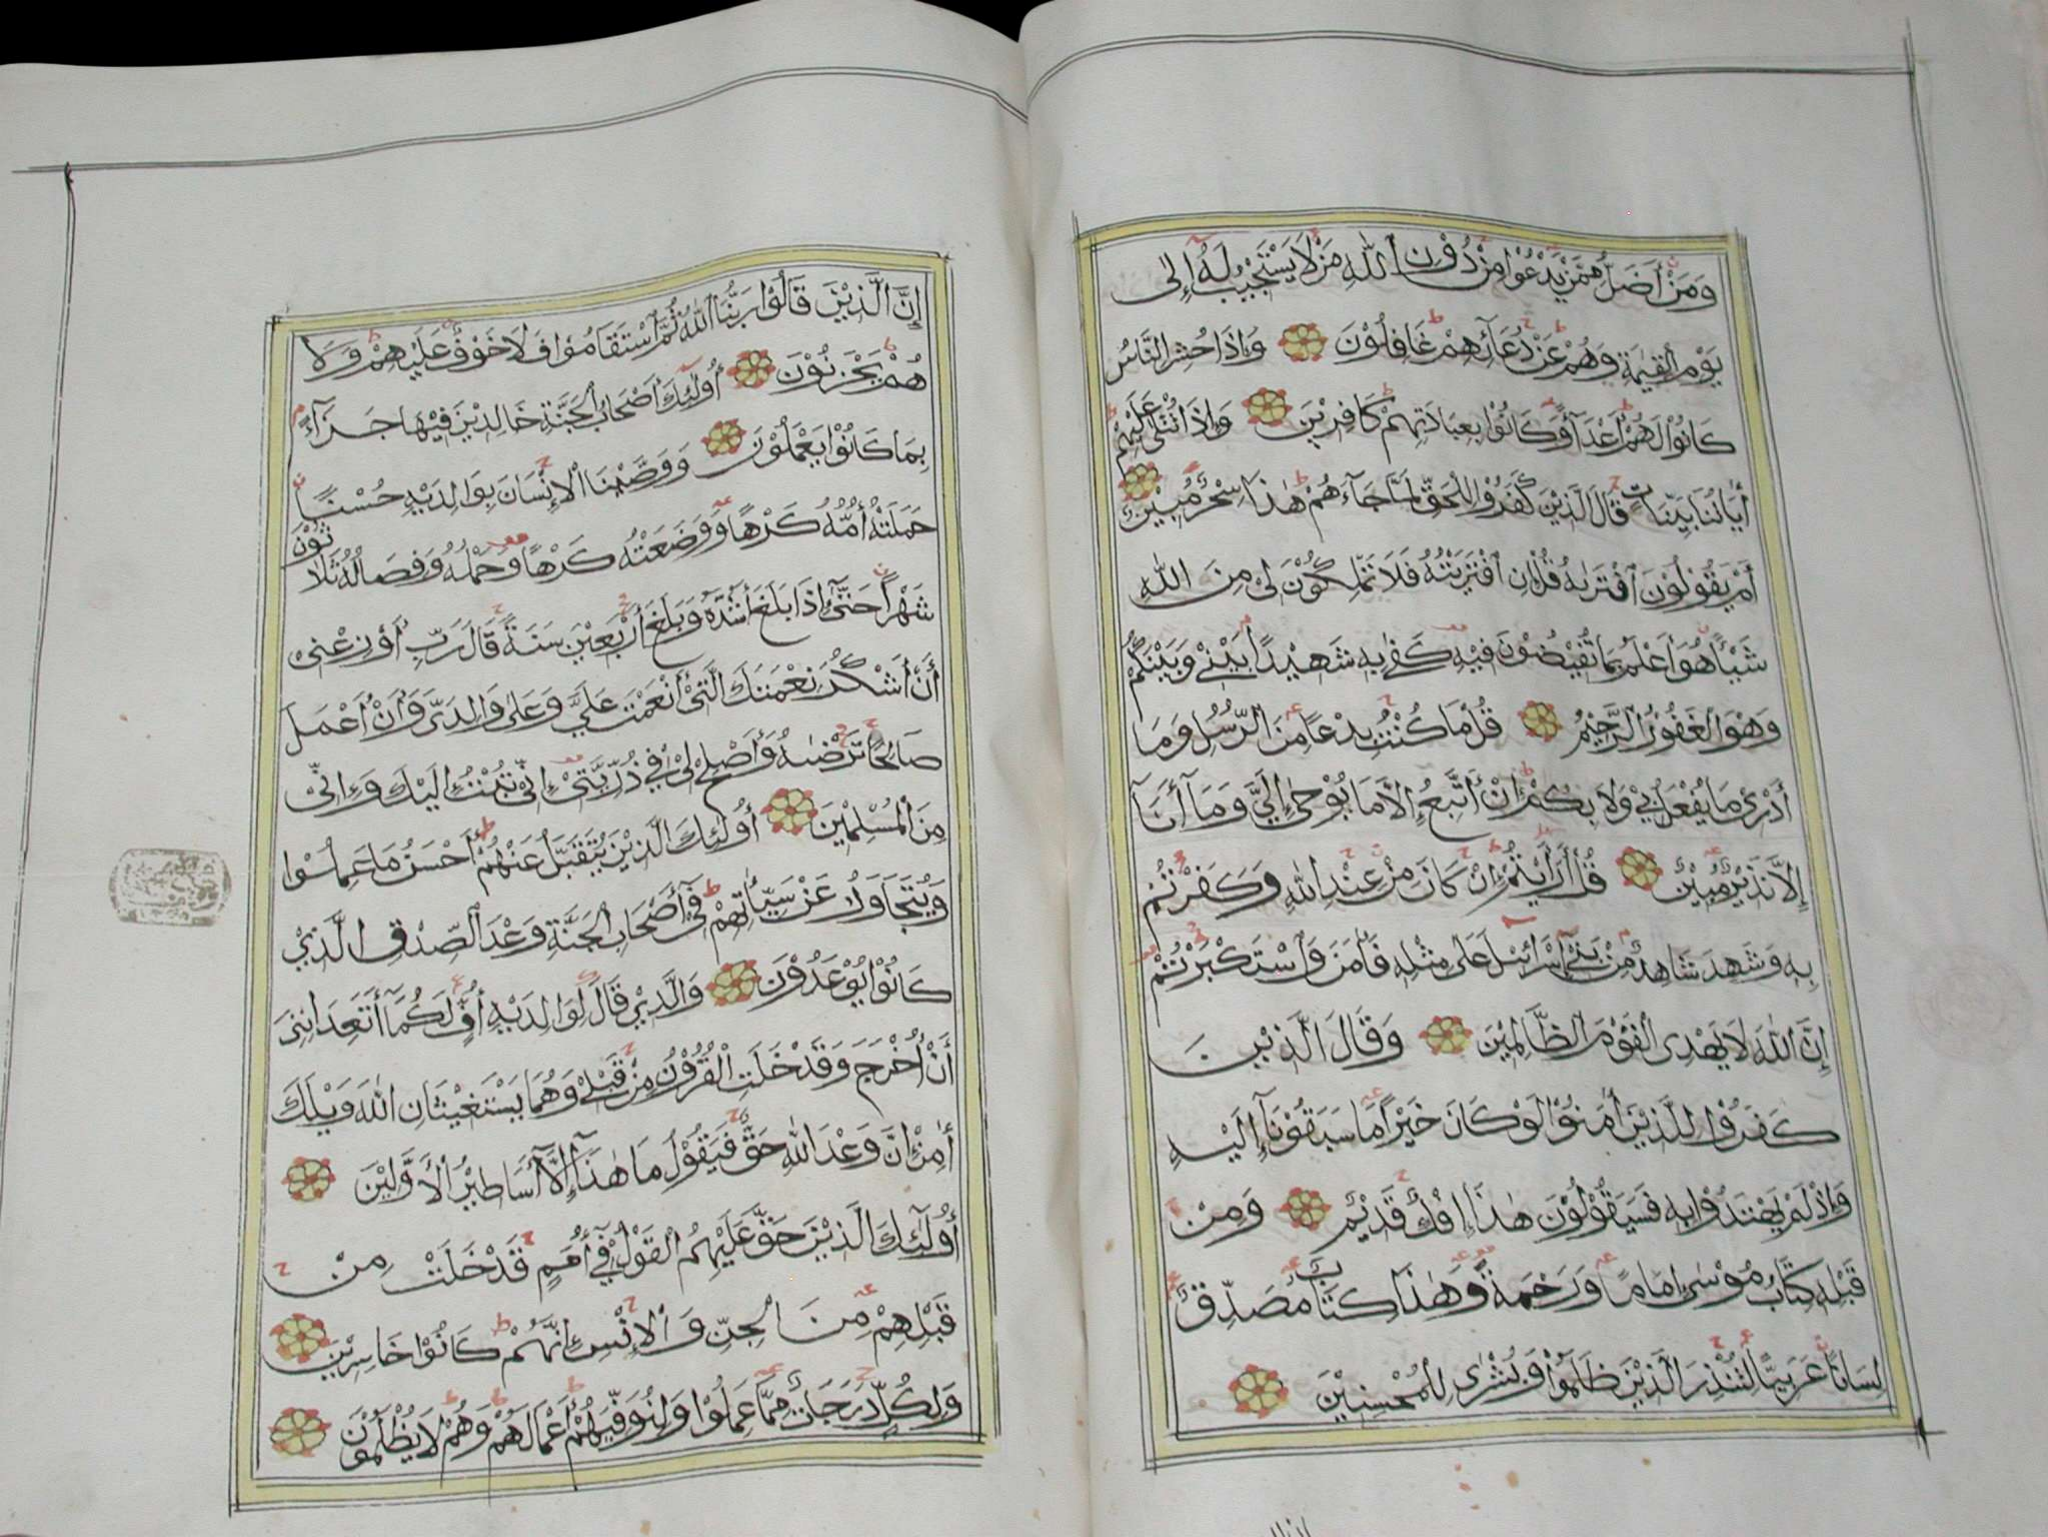 وَمَنْ أَضَلُّ مِمَّنْ يَدْعُوا مِنْ دُوْنِ اللّٰهِ مَنْ لَا يَسْتَجِيْبُ لَهُ إِلٰى
يَوْمِ الْقِيٰمَةِ وَهُمْ عَنْ دُعَآئِهِمْ غَافِلُوْنَ وَإِذَا حُشِرَ النَّاسُ
كَانُوْا لَهُمْ أَعْدَآءً وَكَانُوْا بِعِبَادَتِهِمْ كَافِرِيْنَ وَإِذَا تُتْلٰى عَلَيْهِمْ
أٰيَاتُنَا بَيِّنَاتٍ قَالَ الَّذِيْنَ كَفَرُوْا لِلْحَقِّ لَمَّا جَآءَهُمْ هٰذَا سِحْرٌ مُبِيْنٌ
أَمْ يَقُوْلُوْنَ افْتَرٰىهُ قُلْ إِنِ افْتَرَيْتُهُ فَلَا تَمْلِكُوْنَ لِى مِنَ اللّٰهِ
شَيْئًا هُوَ أَعْلَمُ بِمَا تُفِيْضُوْنَ فِيْهِ كَفٰى بِهِ شَهِيْدًا بَيْنِيْ وَبَيْنَكُمْ
وَهُوَ الْغَفُوْرُ الرَّحِيْمُ قُلْ مَا كُنْتُ بِدْعًا مِنَ الرُّسُلِ وَمَا
أَدْرِىْ مَا يُفْعَلُ بِيْ وَلَا بِكُمْ إِنْ أَتَّبِعُ إِلَّا مَا يُوْحٰى إِلَيَّ وَمَآ أَنَا
إِلَّا نَذِيْرٌ مُبِيْنٌ قُلْ أَرَأَيْتُمْ إِنْ كَانَ مِنْ عِنْدِ اللّٰهِ وَكَفَرْتُمْ
بِهِ وَشَهِدَ شَاهِدٌ مِنْ بَنِيْٓ إِسْرَآئِيْلَ عَلٰى مِثْلِهِ فَأٰمَنَ وَاسْتَكْبَرْتُمْ
إِنَّ اللّٰهَ لَا يَهْدِى الْقَوْمَ الظَّالِمِيْنَ وَقَالَ الَّذِيْنَ
كَفَرُوْا لِلَّذِيْنَ أٰمَنُوْا لَوْ كَانَ خَيْرًا مَا سَبَقُوْنَآ إِلَيْهِ
وَإِذْ لَمْ يَهْتَدُوْا بِهِ فَسَيَقُوْلُوْنَ هٰذَا إِفْكٌ قَدِيْمٌ وَمِنْ
قَبْلِهِ كِتَابُ مُوْسٰى إِمَامًا وَرَحْمَةً وَهٰذَا كِتَابٌ مُصَدِّقٌ
لِسَانًا عَرَبِيًّا لِتُنْذِرَ الَّذِيْنَ ظَلَمُوْا وَبُشْرٰى لِلْمُحْسِنِيْنَ
إِنَّ الَّذِيْنَ قَالُوْا رَبُّنَا اللّٰهُ ثُمَّ اسْتَقَامُوْا فَلَا خَوْفٌ عَلَيْهِمْ وَلَا
هُمْ يَحْزَنُوْنَ أُولٰئِكَ أَصْحَابُ الْجَنَّةِ خَالِدِيْنَ فِيْهَا جَزَآءً
بِمَا كَانُوْا يَعْمَلُوْنَ وَوَصَّيْنَا الْإِنْسَانَ بِوَالِدَيْهِ حُسْنًا
حَمَلَتْهُ أُمُّهُ كَرْهًا وَوَضَعَتْهُ كَرْهًا وَحَمْلُهُ وَفِصَالُهُ ثَلَاثُوْنَ
شَهْرًا حَتّٰىٓ إِذَا بَلَغَ أَشُدَّهُ وَبَلَغَ أَرْبَعِيْنَ سَنَةً قَالَ رَبِّ أَوْزِعْنِى
أَنْ أَشْكُرَ نِعْمَتَكَ الَّتِىْٓ أَنْعَمْتَ عَلَيَّ وَعَلٰى وَالِدَىَّ وَأَنْ أَعْمَلَ
صَالِحًا تَرْضٰىهُ وَأَصْلِحْ لِيْ فِيْ ذُرِّيَّتِىْ إِنِّىْ تُبْتُ إِلَيْكَ وَإِنِّىْ
مِنَ الْمُسْلِمِيْنَ أُولٰئِكَ الَّذِيْنَ يُتَقَبَّلُ عَنْهُمْ أَحْسَنُ مَا عَمِلُوْا
وَيُتَجَاوَزُ عَنْ سَيِّئَاتِهِمْ فِىْٓ أَصْحَابِ الْجَنَّةِ وَعْدَ الصِّدْقِ الَّذِيْ
كَانُوْا يُوْعَدُوْنَ وَالَّذِيْ قَالَ لِوَالِدَيْهِ أُفٍّ لَكُمَآ أَتَعِدَانِنِىْ
أَنْ أُخْرَجَ وَقَدْ خَلَتِ الْقُرُوْنُ مِنْ قَبْلِيْ وَهُمَا يَسْتَغِيْثَانِ اللّٰهَ وَيْلَكَ
أٰمِنْ إِنَّ وَعْدَ اللّٰهِ حَقٌّ فَيَقُوْلُ مَا هٰذَآ إِلَّآ أَسَاطِيْرُ الْأَوَّلِيْنَ
أُولٰٓئِكَ الَّذِيْنَ حَقَّ عَلَيْهِمُ الْقَوْلُ فِيْٓ أُمَمٍ قَدْ خَلَتْ مِنْ
قَبْلِهِمْ مِنَ الْجِنِّ وَالْإِنْسِ إِنَّهُمْ كَانُوْا خَاسِرِيْنَ
وَلِكُلٍّ دَرَجَاتٌ مِمَّا عَمِلُوْا وَلِيُوَفِّيَهُمْ أَعْمَالَهُمْ وَهُمْ لَا يُظْلَمُوْنَ